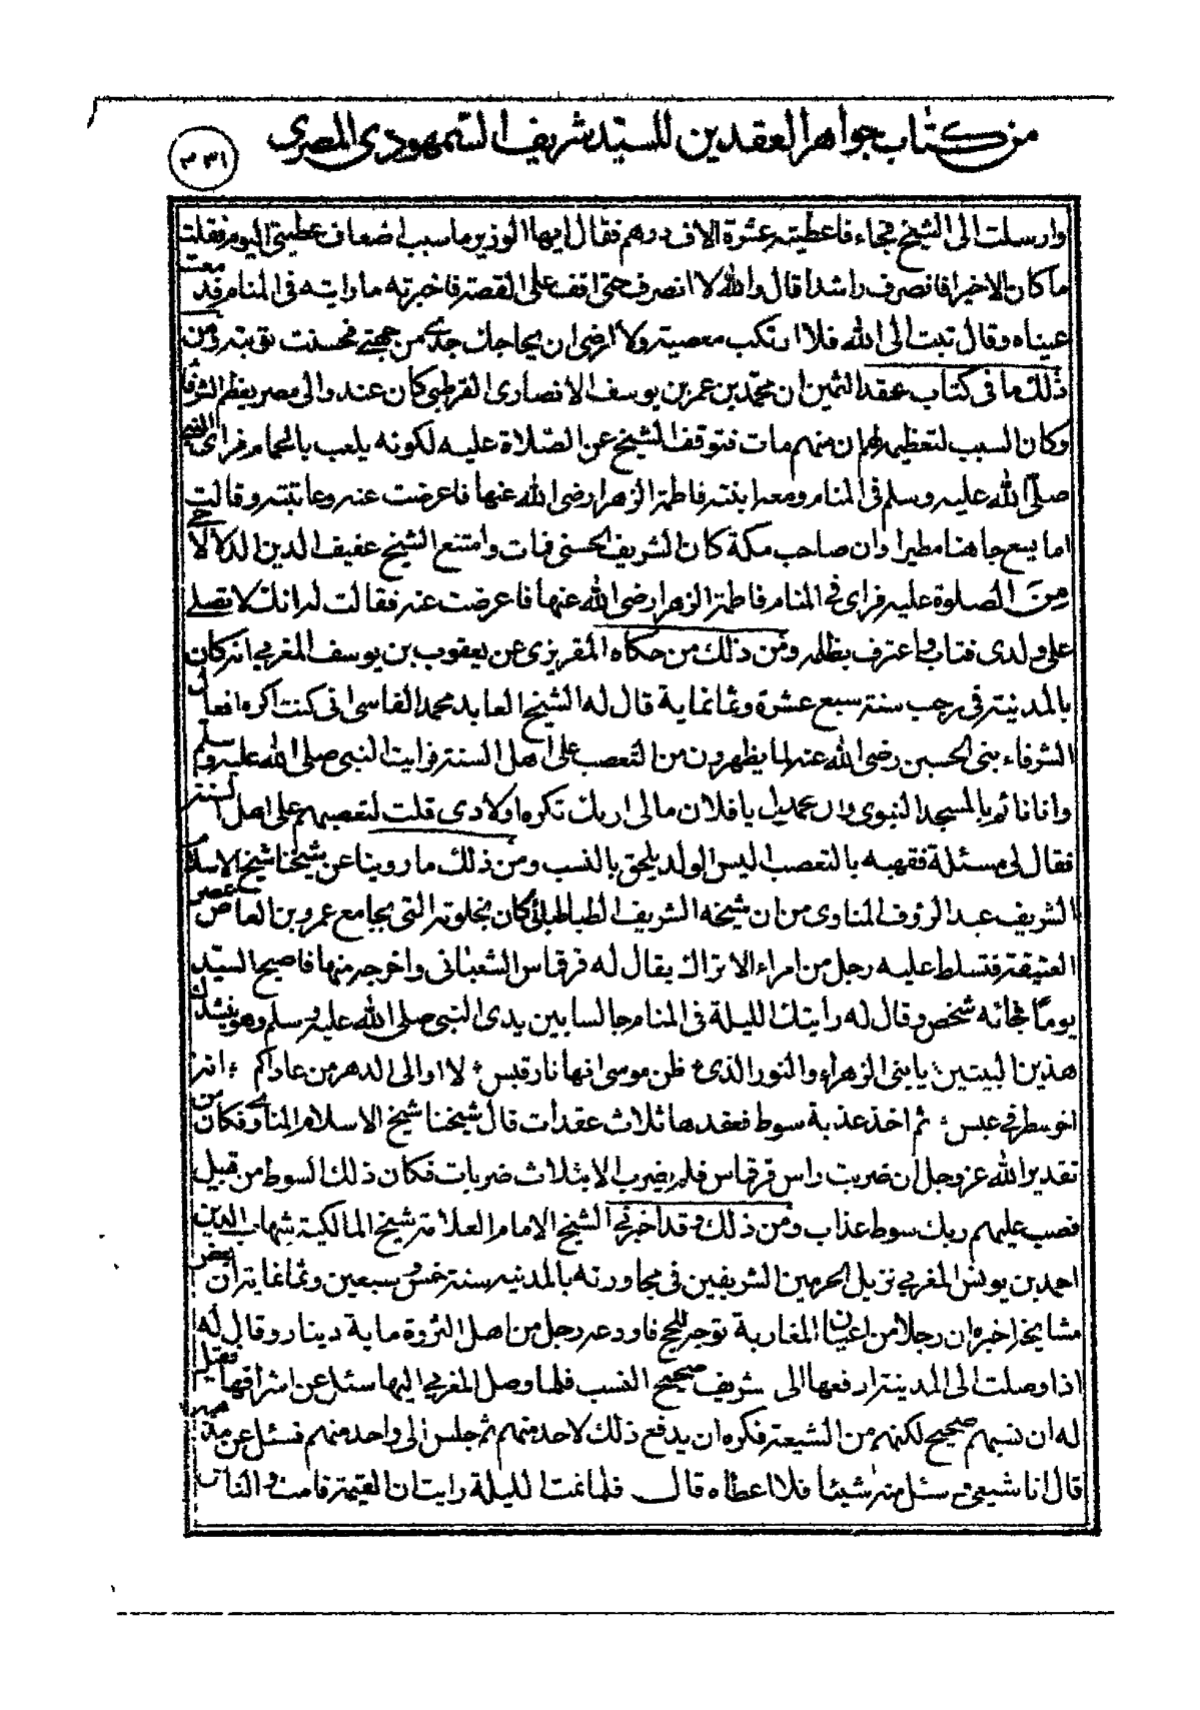 من كتاب جواهر العقدين للسيد شريف السمهودي المصري
وارسلت الى الشيخ فجاء فاعطيته عشرة الاف درهم فقال ايها الوزير ما سبب اضعاف عطيتي اليوم فقلت
ما كان الاخيرا فانصرف راشدا قال والله لا انصرف حتى اقف على القصة فاخبرته ما رايته في المنام فدمعت
عيناه وقال تبت الى الله فلا ارتكب معصية ولا ارضى ان يحاجك جدي من جهتي فحسنت توبته ومن
ذلك ما في كتاب عقد الثمين ان محمد بن عمر بن يوسف الانصاري القرطبي كان عند والى مصر يعظم الشرفا
وكان السبب لتعظيمه لهم ان منهم مات فتوقف الشيخ عن الصلاة عليه لكونه يلعب بالحمام فراى النبي
صلى الله عليه وسلم في المنام ومعه ابنته فاطمة الزهرا رضى الله عنها فاعرضت عنه وعاتبته وقالت
اما يسع جاهنا مطيرا وان صاحب مكة كان الشريف الحسنى فمات وامتنع الشيخ عفيف الدين
من الصلوة عليه فراى في المنام فاطمة الزهرا رضى الله عنها فاعرضت عنه فقالت له انك لا تصلي
على ولدى فتاب واعترف بظلمه ومن ذلك من حكاه المقريزى عن يعقوب بن يوسف المغربي انه كان
بالمدينة في رجب سنة سبع عشرة وثمانماية قال له الشيخ العابد محمد الفاسى انى كنت اكره افعال
الشرفاء بنى الحسين رضى الله عنه لما يظهرون من التعصب على اهل السنة فرايت النبى صلى الله عليه وسلم
وانا نائم بالمسجد النبوى يا فلان مالى اريك تكره اولادى قلت لتعصبهم على اهل السنة
فقال لى مسئلة فقهيه بالتعصب اليس الولد يلحق بالنسب ومن ذلك ما روينا عن شيخنا شيخ الاسلام
الشريف عبد الرؤف المناوى من ان شيخه الشريف الطباطبائى كان بخلوته التى بجامع عمرو بن العاص بمصر
العتيقة فتسلط عليه رجل من امراء الاتراك يقال له قرقماس الشعبانى واخرجه منها فاصبح السيد
يوما فجائه شخص وقال له رأيتك الليلة في المنام جالسا بين يدى النبى صلى الله عليه وسلم وهو ينشدك
هذين البيتين يا بنى الزهراء والنور الذى ظن موسى انها نار قبس لا اوالى الدهر من عاداكم انه
اخر سطر في عبس ثم اخذ عذبة سوط فعقدها ثلاث عقدات قال شيخنا شيخ الاسلام المناوي فكان من
تقدير الله عز وجل ان ضربت راس قرقماس فلم يضرب الا بثلاث ضربات فكان ذلك السوط من قبيل
فصب عليهم ربك سوط عذاب ومن ذلك وقد اخبرني الشيخ الامام العلامة شيخ المالكية شهاب الدين
احمد بن يونس المغربي نزيل الحرمين الشريفين في مجاورته بالمدنيه سنة خمس وسبعين وثمانماية ان بعض
مشايخه اخبره ان رجلا من اعيان المغاربة توجه للحج فاودعه رجل من اهل الثروة ماية دينار وقال له
اذا وصلت الى المدينة ادفعها الى شريف صحيح النسب فلما وصل المغربي اليها سئل عن اشرافها فقيل
له ان نسبهم صحيح لكنهم من الشيعة فكره ان يدفع ذلك لاحد منهم ثم جلس الى واحد منهم فسئل عن مذهبه
قال انا شيعى سئل منه شيئا فلا اعطاه قال فلما نمت الليلة رايت ان القيمة قامت والناس